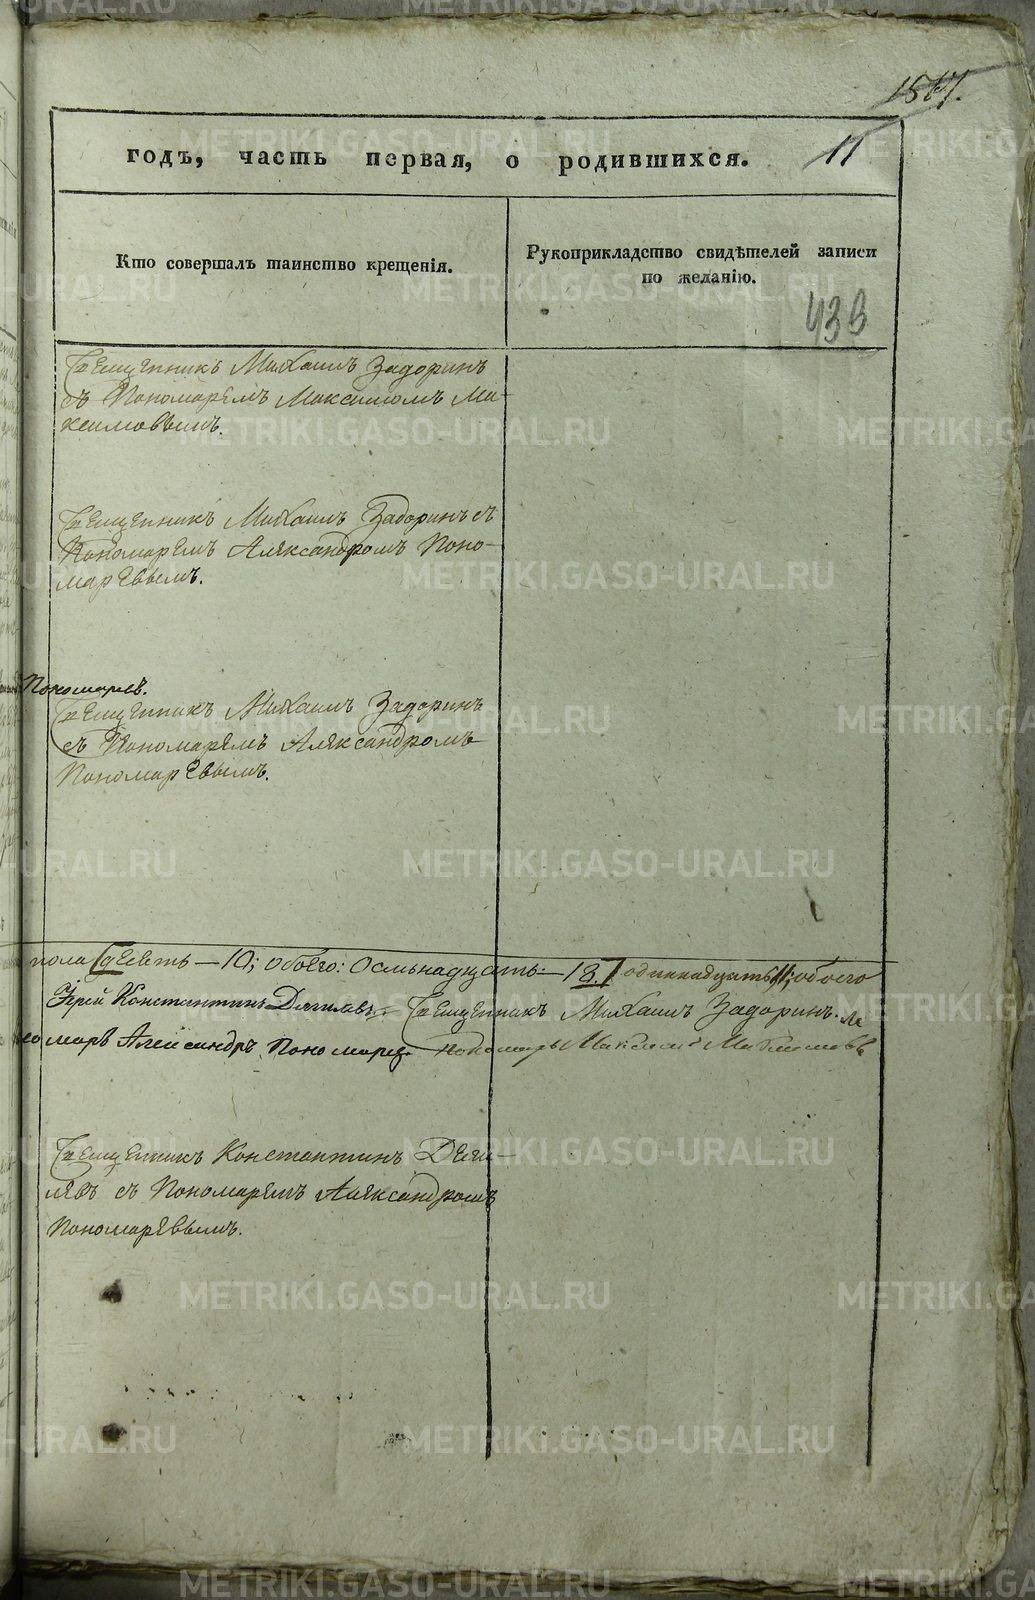 1567.
годъ, часть первая, о родившихся. 11
Кто совершалъ таинство крещенія.
Рукоприкладство свидѣтелей записи
по желанію.
433
Священникъ Михаилъ Задоринъ
съ Пономаремъ Максимомъ Ма-
ксимовымъ.
Священникъ Михаилъ Задоринъ съ
Пономаремъ Александромъ Поно-
маревымъ.
Пономаревъ.
Священникъ Михаилъ Задоринъ
съ Пономаремъ Александромъ
Пономаревымъ.
пола девять — 10; обоего: Осмьнадцать: — 18. одиннадцать, 11; обоего
Іерей Константинъ Священникъ Михаилъ Задоринъ.
Александръ Пономарев. Пономарь
Священникъ Константинъ
съ Пономаремъ Александромъ
Пономаревымъ.
METRIKI.GASO-URAL.RU